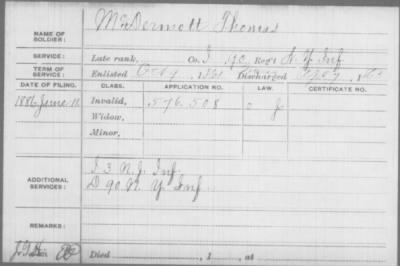 NAME OF SOLDIER: McDermott Thomas
SERVICE: Late rank, Co. I 90 Reg't N. Y. Inf
TERM OF SERVICE: Enlisted 1861 Discharged 186
DATE OF FILING. CLASS. APPLICATION NO. LAW. CERTIFICATE NO.
1886 June 11 Invalid, 576.508
Widow,
Minor,
ADDITIONAL SERVICES: I 3 N. J. Inf
D 90. N. Y Inf.
REMARKS:
Died , 1 , at